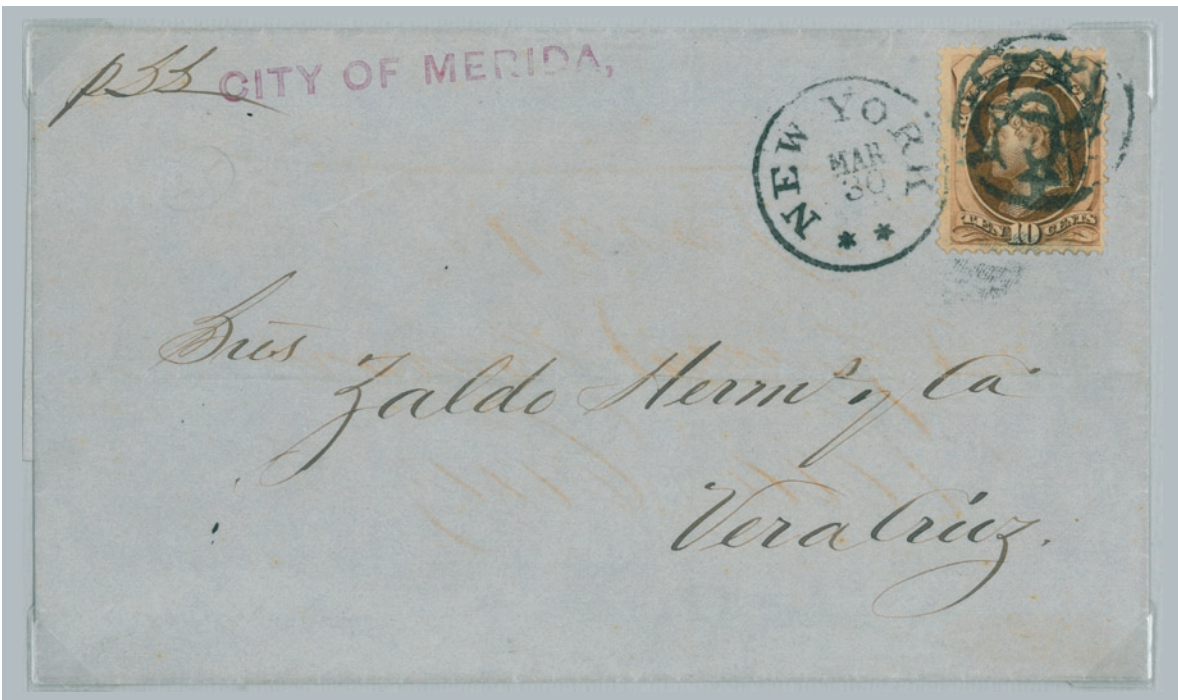 pSS CITY OF MERIDA,
NEW YORK
MAR
30
TEN 10 CENTS
Sres
Zaldo Herms. y Ca
Vera Cruz.